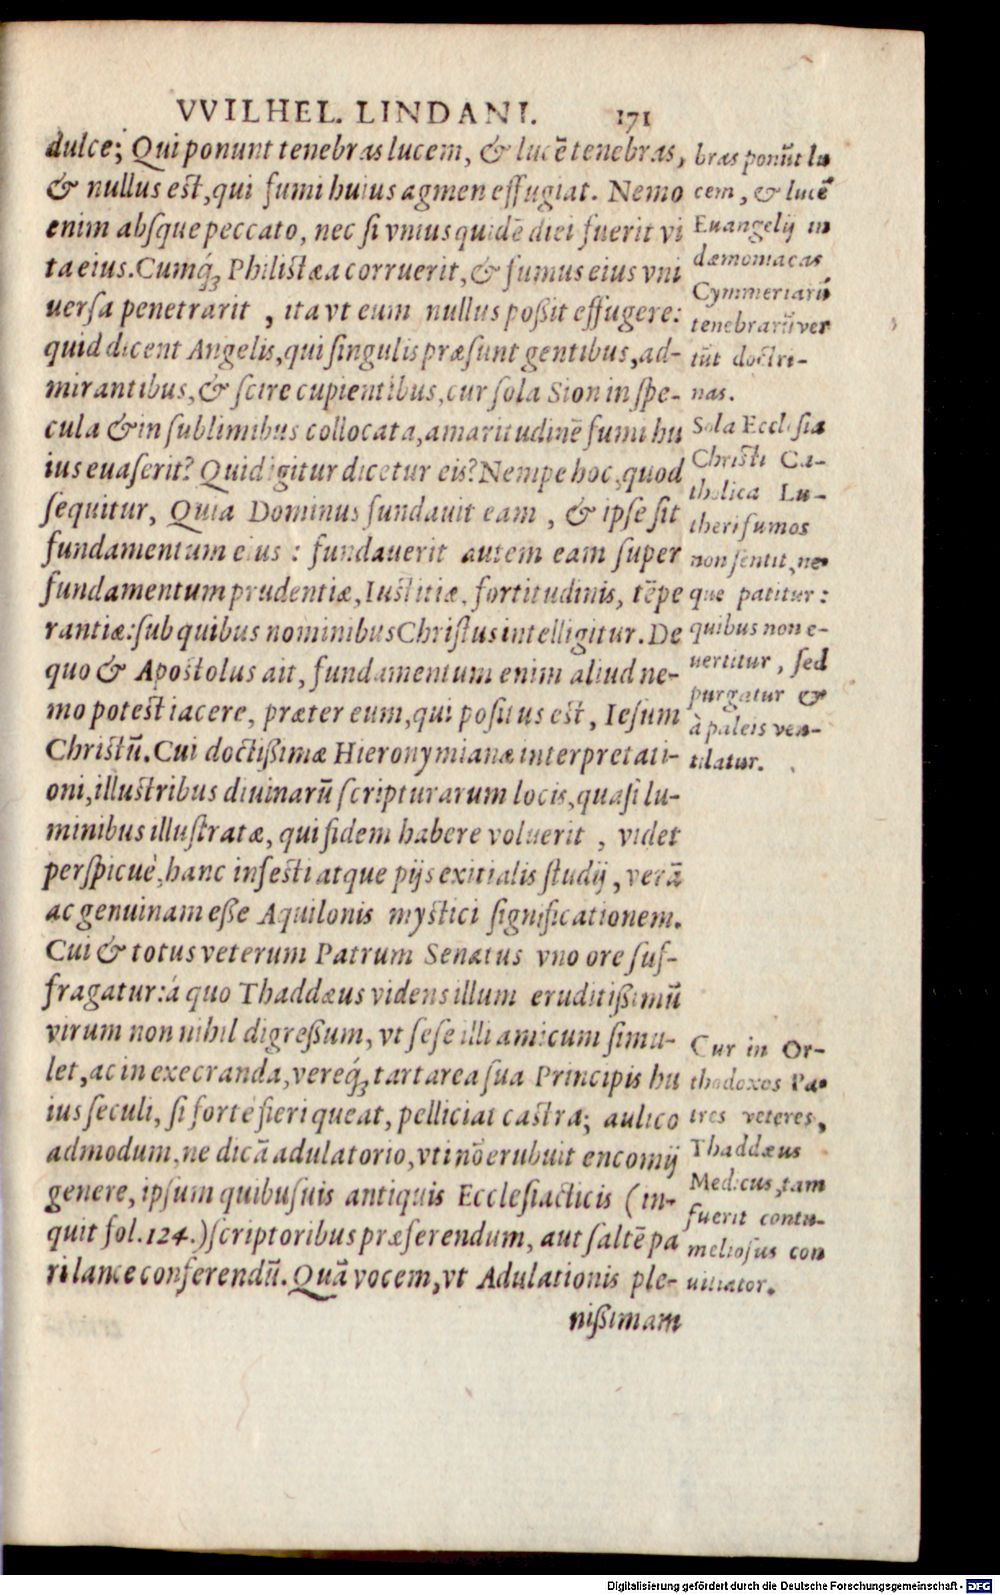 VVILHEL. LINDANI. 171
dulce; Qui ponunt tenebras lucem, & lucē tenebras,
& nullus est, qui fumi huius agmen effugiat. Nemo
enim absque peccato, nec si vnius quidē diei fuerit vi
ta eius. Cumq́; Philistæa corruerit, & fumus eius vni
uersa penetrarit, ita vt eum nullus poßit effugere:
quid dicent Angelis, qui singulis præsunt gentibus, ad-
mirantibus, & scire cupientibus, cur sola Sion in spe-
cula & in sublimibus collocata, amaritudinē fumi hu
ius euaserit? Quid igitur dicetur eis? Nempe hoc, quod
sequitur, Quia Dominus fundauit eam, & ipse sit
fundamentum eius: fundauerit autem eam super
fundamentum prudentiæ, Iustitiæ, fortitudinis, tēpe
rantiæ: sub quibus nominibus Christus intelligitur. De
quo & Apostolus ait, fundamentum enim aliud ne-
mo potest iacere, præter eum, qui positus est, Iesum
Christū. Cui doctißimæ Hieronymianæ interpretati-
oni, illustribus diuinarū scripturarum locis, quasi lu-
minibus illustratæ, qui fidem habere voluerit, videt
perspicuè, hanc infesti atque pijs exitialis studij, verā
ac genuinam eße Aquilonis mystici significationem.
Cui & totus veterum Patrum Senatus vno ore suf-
fragatur: á quo Thaddæus videns illum eruditißimū
virum non nihil digreßum, vt sese illi amicum simu-
let, ac in execranda, vereq́; tartarea sua Principis hu
ius seculi, si fortè fieri queat, pelliciat castra; aulico
admodum, ne dicā adulatorio, vti nō erubuit encomij
genere, ipsum quibusuis antiquis Ecclesiasticis (in-
quit fol. 124.) scriptoribus præferendum, aut saltē pa
ri lance conferendū. Quā vocem, vt Adulationis ple-
nißimam
bras ponūt lu
cem, & lucē
Euangelij in
dæmoniacas
Cymmeriarū
tenebrarū ver
tūt doctri-
nas.
Sola Ecclesia
Christi Ca-
tholica Lu-
theri fumos
non sentit, ne-
que patitur:
quibus non e-
uertitur, sed
purgatur &
à paleis ven-
tilatur.
Cur in Or-
thodoxos Pa-
tres veteres,
Thaddæus
Medicus, tam
fuerit contu-
meliosus con
uitiator.
Digitalisierung gefördert durch die Deutsche Forschungsgemeinschaft - DFG